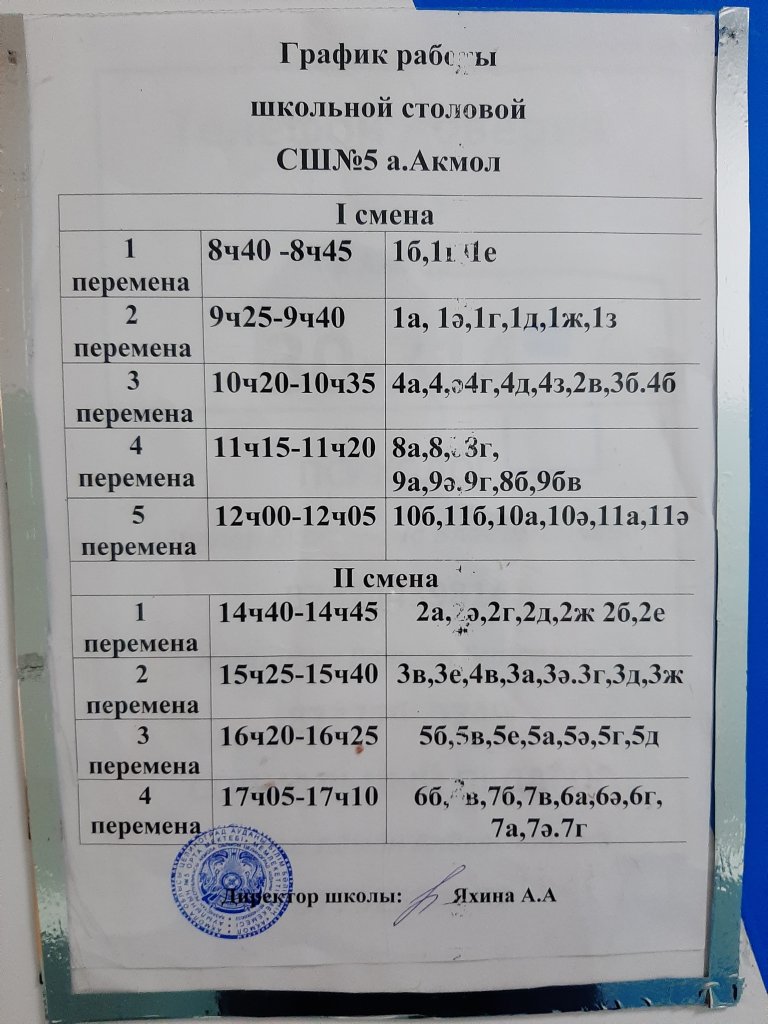 График работы
школьной столовой
СШ№5 а.Акмол
I смена
1 перемена 8ч40 -8ч45 1б, 1е
2 перемена 9ч25-9ч40 1а, 1ә,1г,1д,1ж,1з
3 перемена 10ч20-10ч35 4а,4,ә4г,4д,4з,2в,3б.4б
4 перемена 11ч15-11ч20 8а,
9а,9ә.9г,8б,9бв
5 перемена 12ч00-12ч05 10б,11б,10а,10ә,11а,11ә
II смена
1 перемена 14ч40-14ч45 2а,2ә,2г,2д,2ж 2б,2е
2 перемена 15ч25-15ч40 3в,3е,4в,3а,3ә.3г,3д,3ж
3 перемена 16ч20-16ч25 5б,5в,5е,5а,5ә,5г,5д
4 перемена 17ч05-17ч10 6б,6в,7б,7в,6а,6ә,6г,
7а,7ә.7г
Директор школы: Яхина А.А